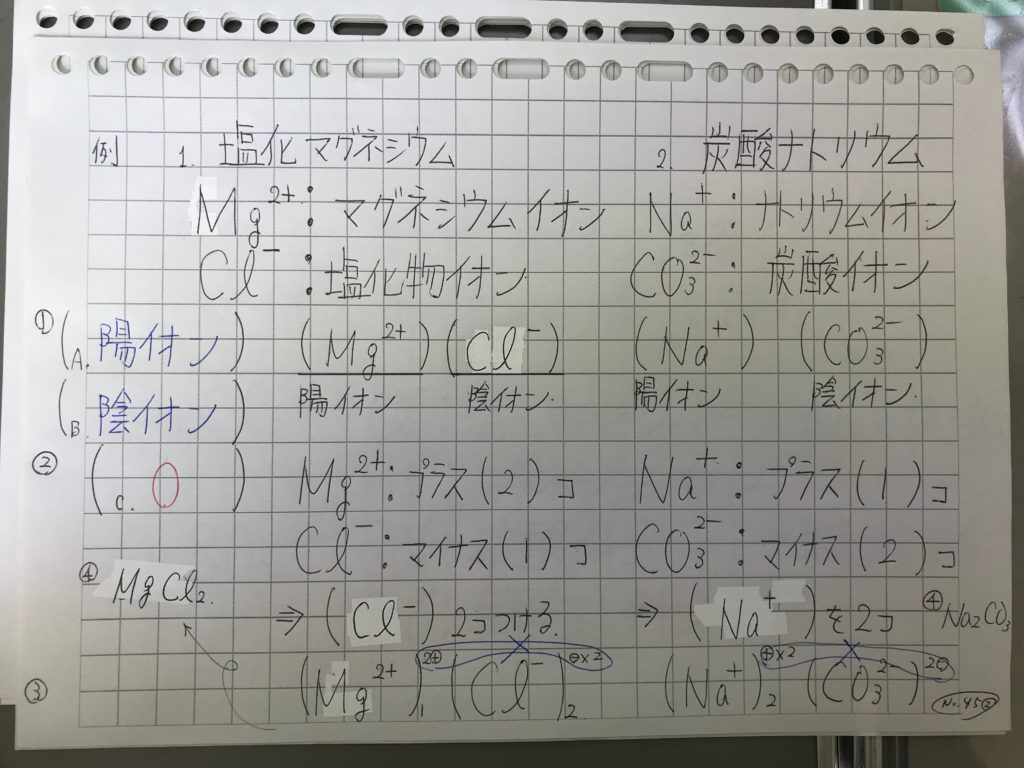 例 1. 塩化マグネシウム 2. 炭酸ナトリウム
Mg²⁺: マグネシウムイオン Na⁺: ナトリウムイオン
Cl⁻: 塩化物イオン CO₃²⁻: 炭酸イオン
① (A. 陽イオン) (Mg²⁺) (Cl⁻) (Na⁺) (CO₃²⁻)
(B. 陰イオン) 陽イオン 陰イオン. 陽イオン 陰イオン.
② (C. 0) Mg²⁺: プラス(2)コ Na⁺: プラス(1)コ
Cl⁻: マイナス(1)コ CO₃²⁻: マイナス(2)コ
④ MgCl₂. ⇒ (Cl⁻) 2コつける. ⇒ (Na⁺)を2コ ④ Na₂CO₃
2⊕ × ⊖×2 ⊕×2 × 2⊖
③ (Mg²⁺)₁ (Cl⁻)₂ (Na⁺)₂ (CO₃²⁻) No.45②